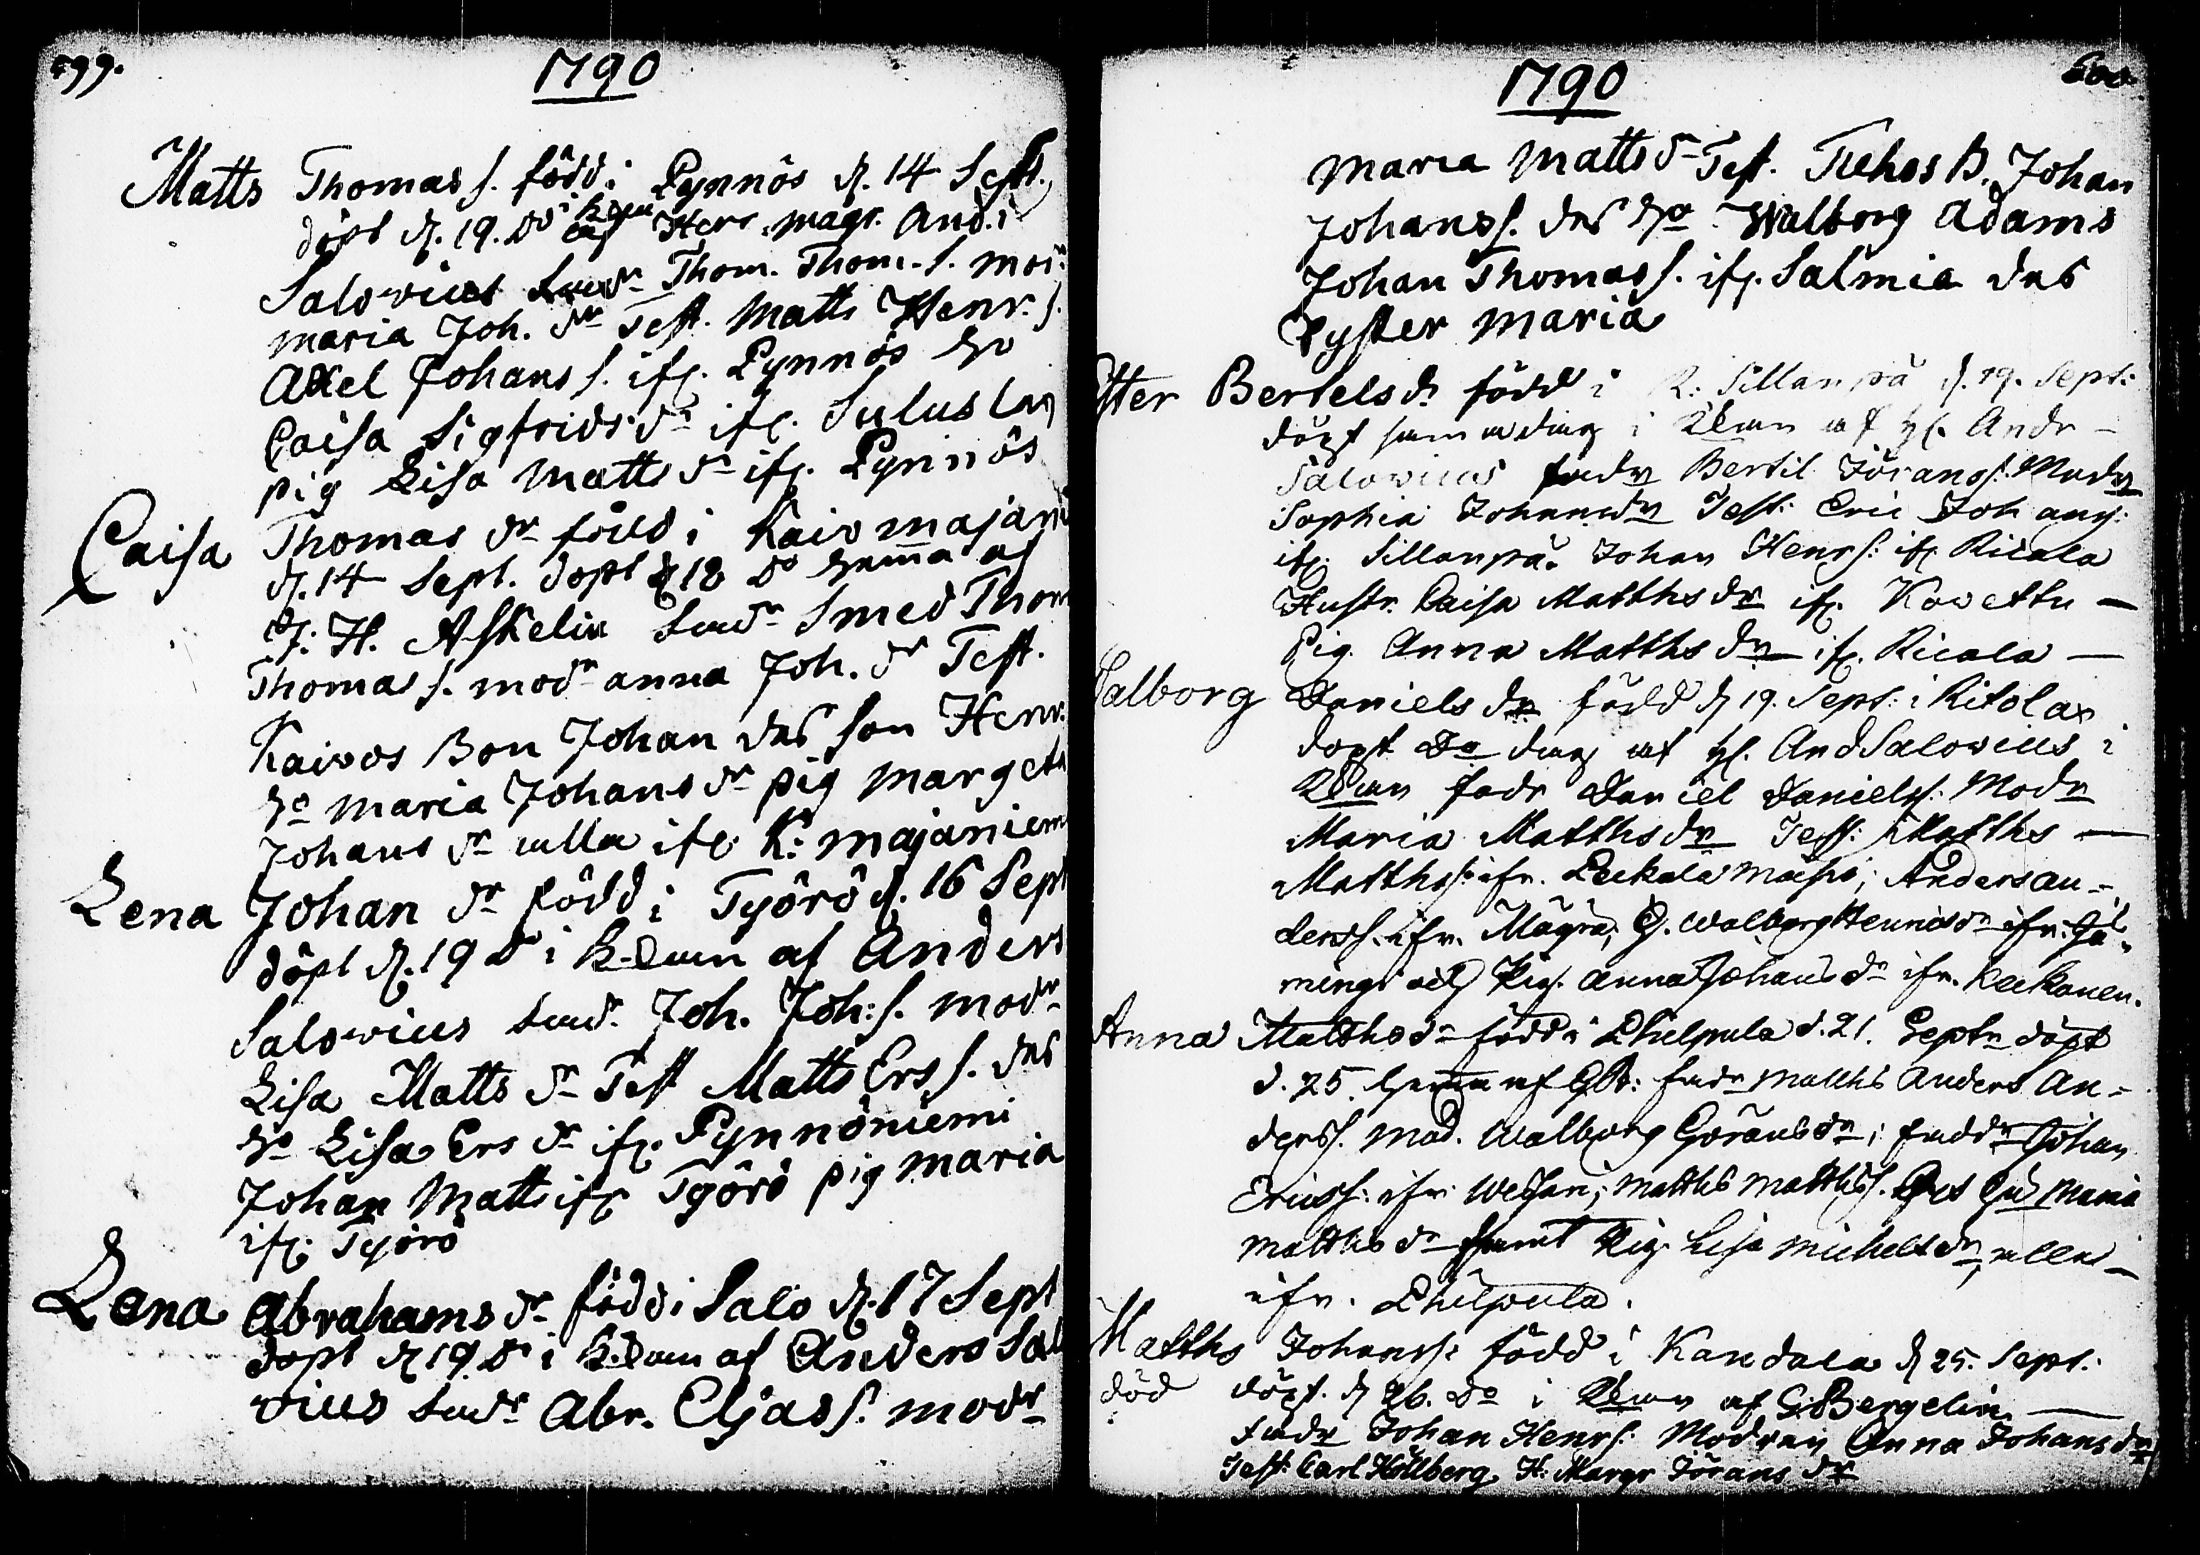 599.
1790
Matts Thomas s. född i Pynnös d. 14 Sept.
döpt d. 19. do i k:dom af Herr magr. And.
Salovius fadr Thom. Thom. s. modr
maria Joh. dr Test. Matts Henr. s.
Axel Johans s. ifr. Pynnös ho
Caisa Sigfrids dr ifr.
pig Lisa Matts dr ifr. Pynnös
Caisa Thomas dr född i Kaivomajani
d. 14 Sept. döpt d 18 do hemma af
J. H. Askelin fadr Smed Thom
Thomas s. modr anna Joh. dr Test.
Kaivos Bon Johan des son Henr.
ho maria Johans dr pig margeta
Johans dr alla ifr. K: majaniem
Lena Johan dr född i Työrö d. 16 Sept
döpt d. 19 do i k:dom af Anders
Salovius fadr Joh. Joh: s. modr
Lisa Matts dr Test Matts Ers s. des
ho Lisa Ers dr ifr. Pynnöniemi
Johan Matts ifr Työrö pig maria
ifr. Työrö
Lena Abrahams dr född i Salo d. 17 Sept
döpt d 19 do i k:dom af Anders Salo
vius fadr Abr. Eljas s. modr
600.
1790
maria matts dr Test. B. Johan
Johans s. des ho Walborg Adams
Johan Thomas s. ifr. Salmia des
syster maria
ster Bertels dr född i K: Sillanpä d. 19. Sept:
döpt samma dag i k:dom af H. Andr
Salovius fadr Bertil Jörans s. Modr
Sophia Johansdr Test: Eric Johans:
ifr. Sillanpä. Johan Henrs: ifr Ricala
Hustr. Caisa Matthsdr ifr.
Pig. Anna Matthsdr ifr. Ricala
Valborg Danielsdr född d 19. Sept: i Ritola
döpt do dag af H. And Salovius i
k:dom fadr Daniel Daniels s: Modr
Maria Matthsdr Test: Matths
Matths s: ifr. Anders An-
derss. ifr. Mägrä, H. Walborg dr ifr.
och Pig. Anna Johans dr ifr. Keckonen.
Anna Matths dr född i Philpula d. 21. Septr döpt
d. 25 hemma af GB: fadr Matths Anders An-
derss. Mod. Walborg Göransdr; faddr Johan
Ericss: ifr. Matths Matthss. des Hu Maria
Matths dr samt Pig. Lisa Michelsdr, alla
ifr. Philpula.
Matths Johanss: född i Kandala d 25. Sept.
död döpt. d 26. do i k:dom af G Bergelin
fadr Johan Henrs: Modren Anna Johansdr
Test: Carl Hällberg H. Margr Jörans dr